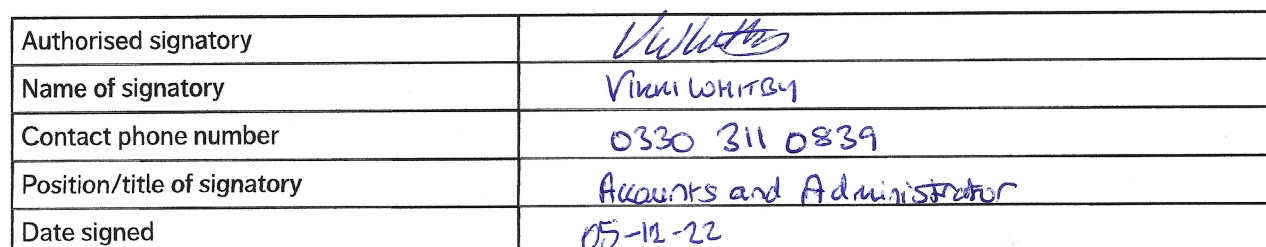 Authorised signatory
Name of signatory VIKKI WHITBY
Contact phone number 0330 311 0839
Position/title of signatory Accounts and Administrator
Date signed 05-12-22